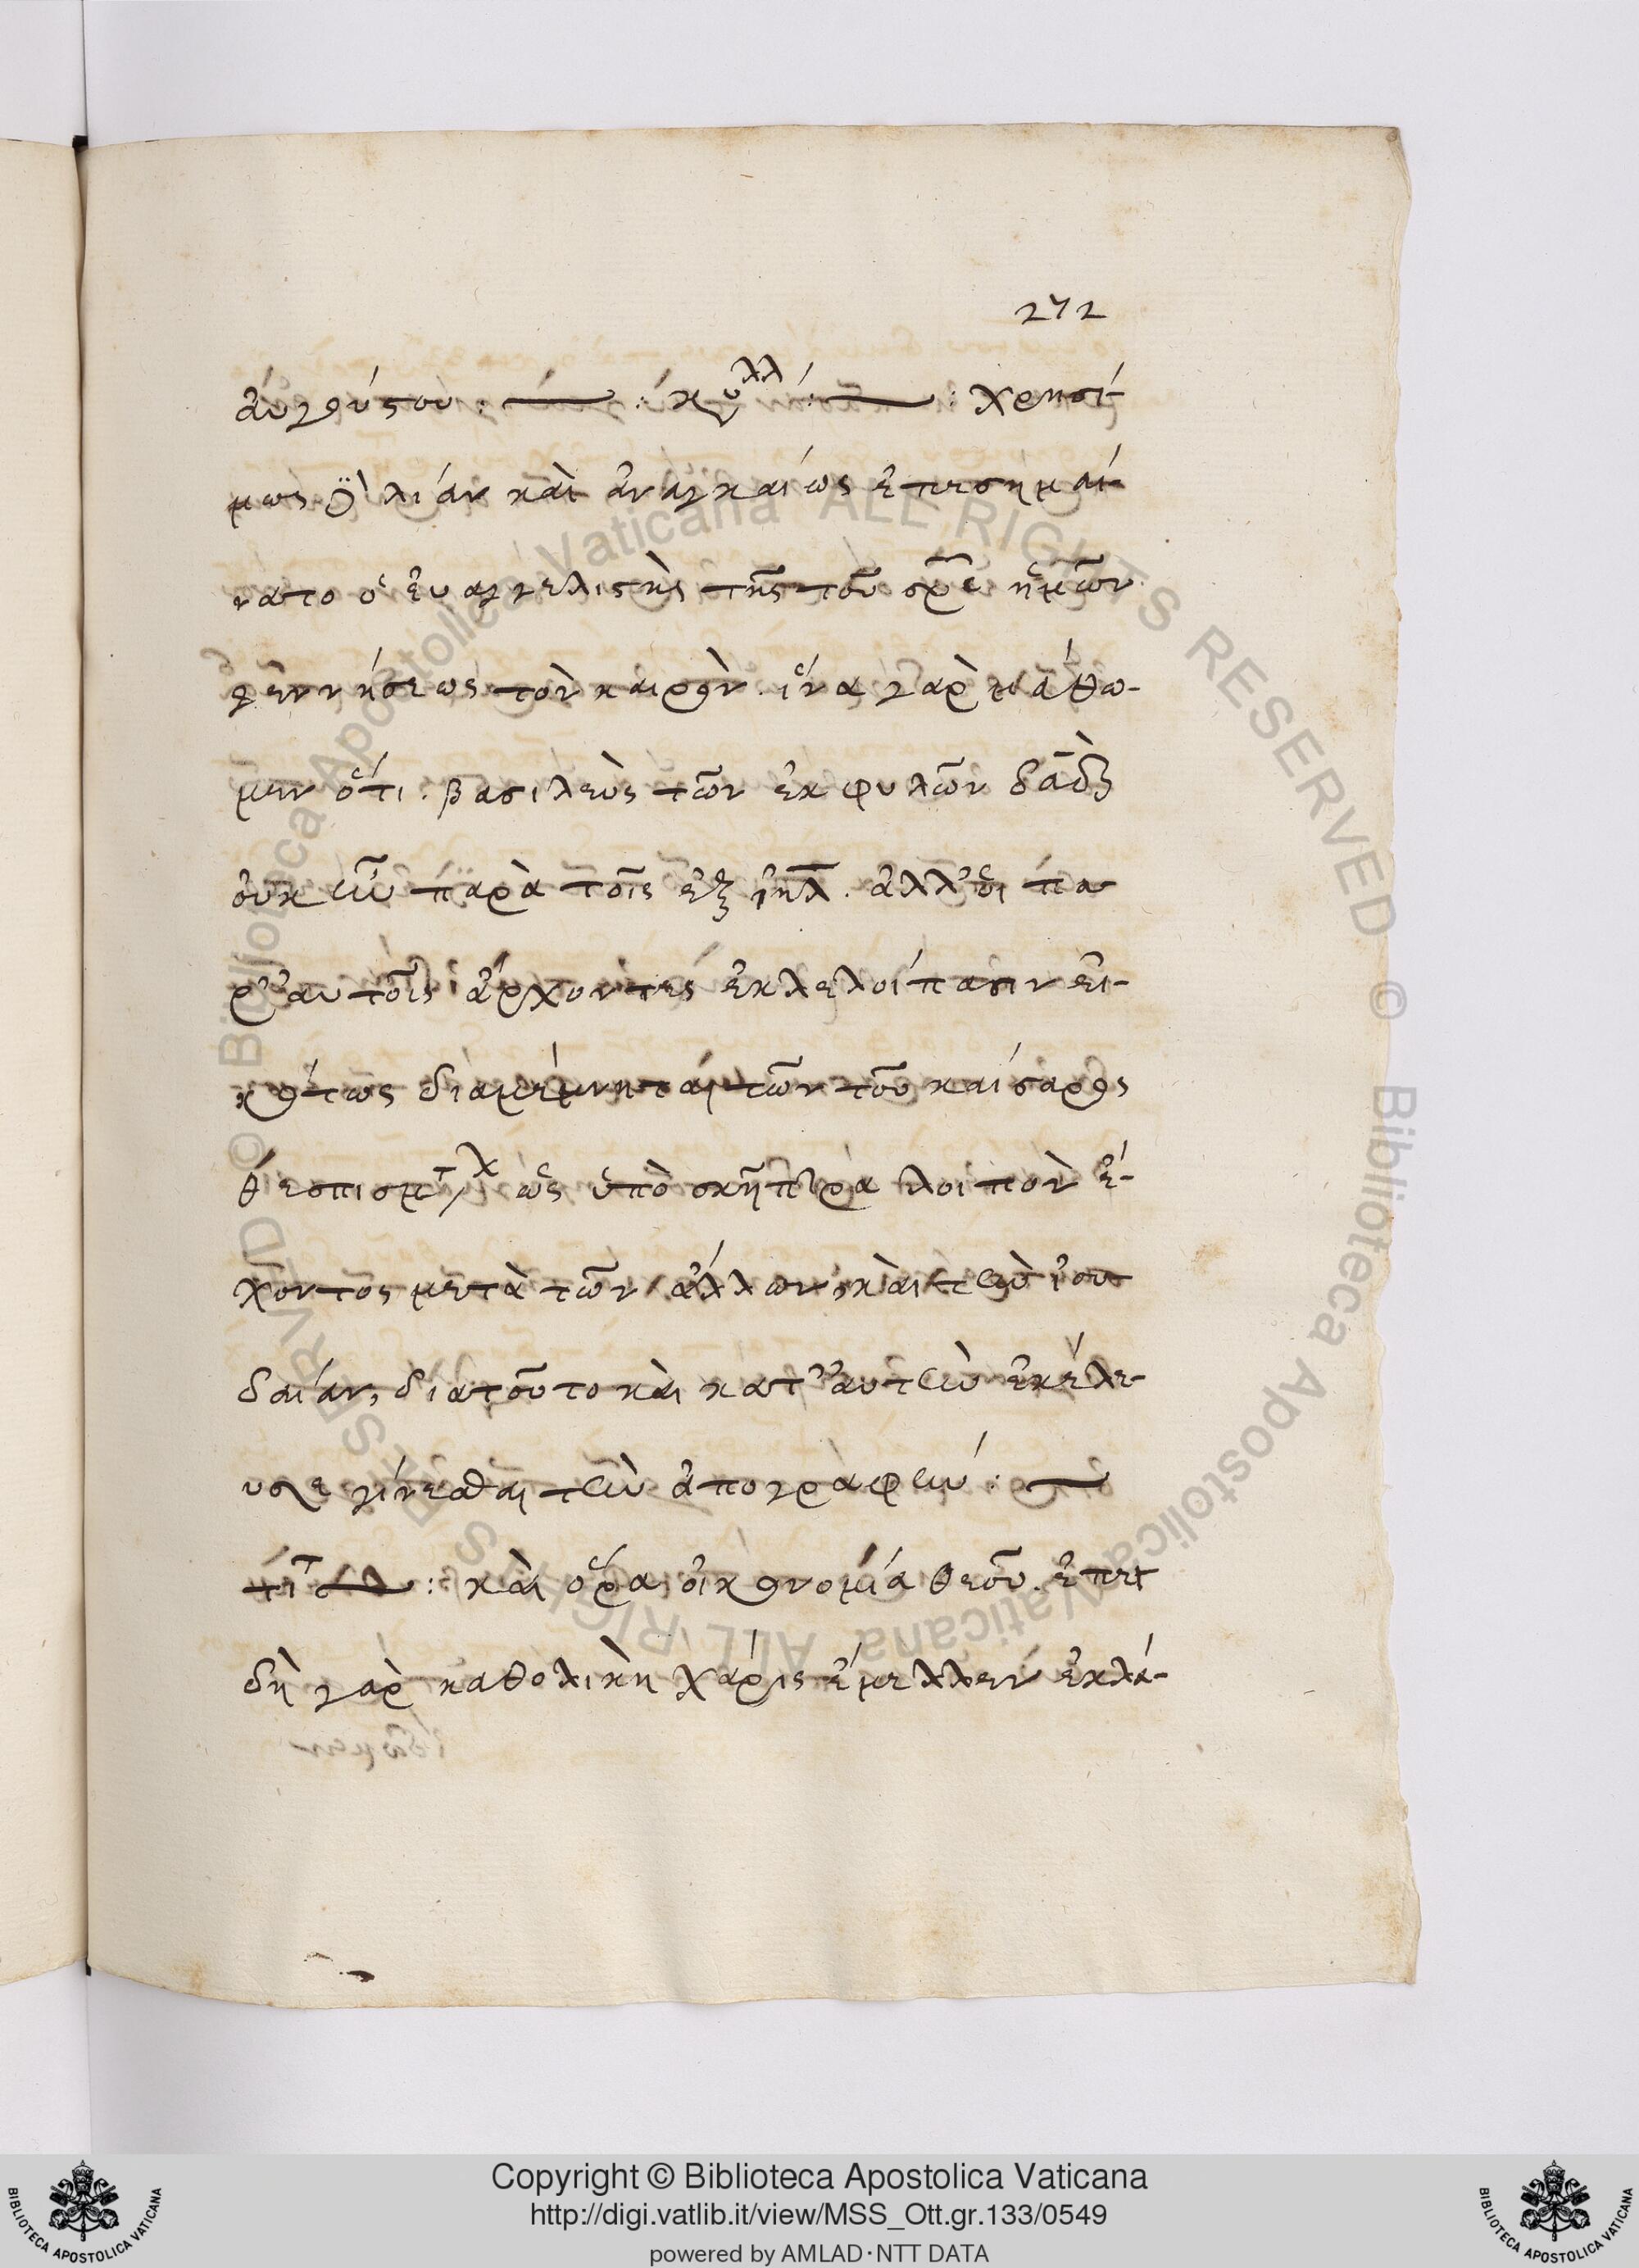 272
ἀυγούστου : — : κυλλ : — : χρησί-
μως δὲ λίαν καὶ ἀναγκαίως ἐπεσημαί
νατο ὁ ἐυαγγελιστὴς τῆς τοῦ σρ̅ε̅ ἡμῶν
γεννήσεως τὸν καιρὸν. ἵνα γὰρ μάθω-
μεν ὅτι. βασιλεὺς τῶν ἐκ φυλῶν δα̅δ̅
ὀυκ ἦν παρὰ τοῖς ἐξ ι̅η̅λ̅. ἀλλ' ὁι πα
ρ' ἀυτοῖς ἄρχοντες ἐκλελοίπασιν ἐι-
κότως διαμέμνηται τῶν τοῦ καίσαρος
θεσπισμτ ὡς ὑπὸ σκῆπτρα λοιπὸν ἔ-
χοντος μετὰ τῶν ἄλλων, καὶ τὴν ἰου
δαίαν, διατοῦτο καὶ κατ' ἀυτὴν ἐκέλε-
υσε γίνεσθαι τὴν ἀπογραφήν : —
τίτ : καὶ ὅρα οἰκονομία θεοῦ. ἐπει
δὴ γὰρ καθολικὴ χάρις ἔμελλεν ἐκλά-
Copyright © Biblioteca Apostolica Vaticana
http://digi.vatlib.it/view/MSS_Ott.gr.133/0549
powered by AMLAD·NTT DATA
BIBLIOTECA APOSTOLICA VATICANA
BIBLIOTECA APOSTOLICA VATICANA
© Biblioteca Apostolica Vaticana ALL RIGHTS RESERVED
© Biblioteca Apostolica Vaticana ALL RIGHTS RESERVED